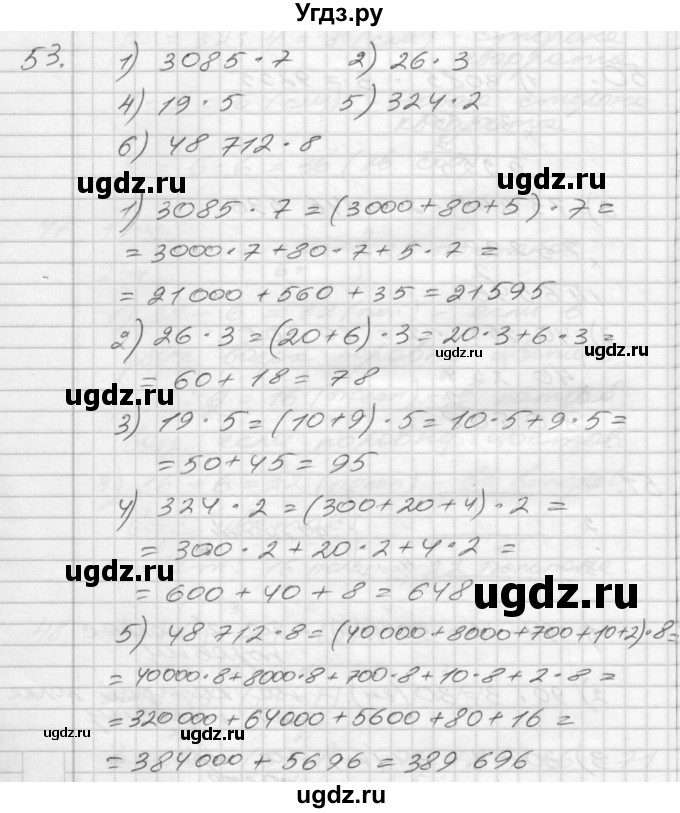 Угдз.ру
53. 1) 3085 · 7 2) 26 · 3
4) 19 · 5 5) 324 · 2
6) 48 712 · 8
ugdz.ru ugdz.ru
1) 3085 · 7 = (3000 + 80 + 5) · 7 =
= 3000 · 7 + 80 · 7 + 5 · 7 =
= 21000 + 560 + 35 = 21595
2) 26 · 3 = (20 + 6) · 3 = 20 · 3 + 6 · 3 =
ugdz.ru ugdz.ru
= 60 + 18 = 78
ugdz.ru
3) 19 · 5 = (10 + 9) · 5 = 10 · 5 + 9 · 5 =
= 50 + 45 = 95
4) 324 · 2 = (300 + 20 + 4) · 2 =
= 300 · 2 + 20 · 2 + 4 · 2 =
ugdz.ru
= 600 + 40 + 8 = 648
ugdz.ru
5) 48 712 · 8 = (40000 + 8000 + 700 + 10 + 2) · 8 =
= 40000 · 8 + 8000 · 8 + 700 · 8 + 10 · 8 + 2 · 8 =
= 320 000 + 64000 + 5600 + 80 + 16 =
ugdz.ru ugdz.ru
= 384000 + 5696 = 389 696
ugdz.ru